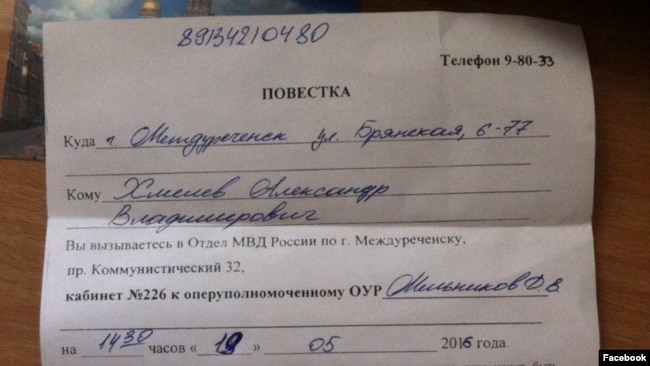 89134210480
Телефон 9-80-33
ПОВЕСТКА
Куда г. Междуреченск ул. Брянская, 6-77
Кому Хмелев Александр
Владимирович
Вы вызываетесь в Отдел МВД России по г. Междуреченску,
пр. Коммунистический 32,
кабинет №226 к оперуполномоченному ОУР Мельников Д.В
на 14 30 часов « 19 » 05 2016 года.
Facebook